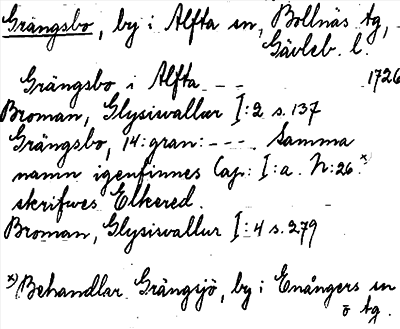 Grängsbo, by i Alfta sn, Bollnäs tg,
Gävleb. l.
Grängsbo i Alfta - - - 1726
Broman, Glysisvallur I:2 s. 137
Grängsbo, 14: gran: - - - . Samma
namn igenfinnes Cap: I: a. N: 26.x)
skrifwes Elkered.
Broman, Glysisvallur I:4 s. 279
x) Behandlar Grängsjö, by i Enångers sn
ö tg.